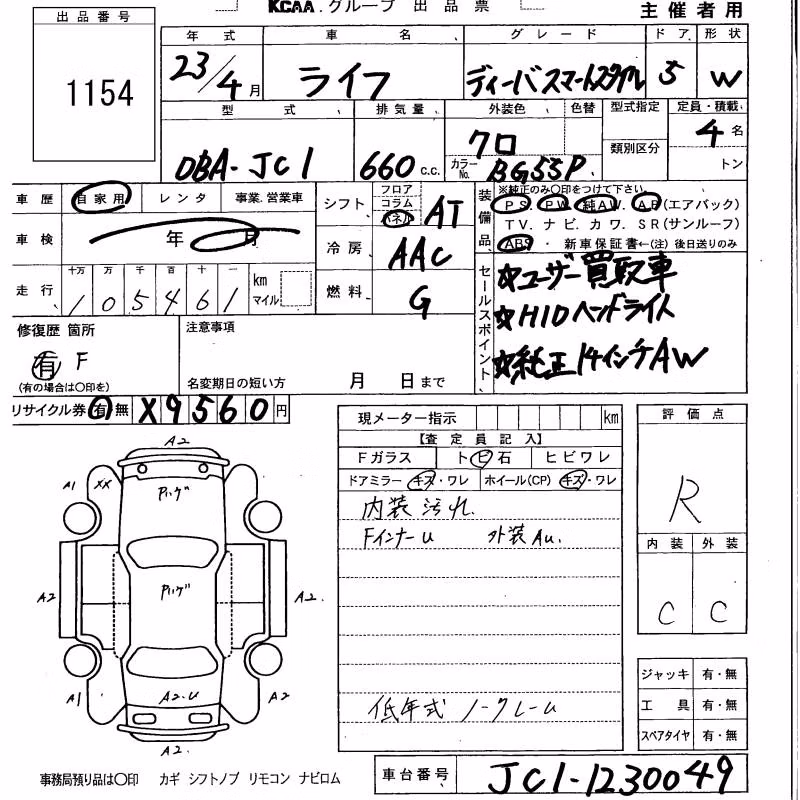 KCAA.グループ 出品票
主催者用
出品番号
1154
年式 車名 グレード ドア 形状
23/4月 ライフ ディーバスマートスタイル 5 W
型式 排気量 外装色 色替 型式指定 定員・積載
DBA-JC1 660c.c. クロ 類別区分 4名
カラーNo. BG55P. トン
車歴 自家用 レンタ 事業.営業車
車検 年 月
走行 十万 万 千 百 十 一
105461 km マイル
シフト フロア コラム パネル AT
冷房 AAC
燃料 G
装備品 ※純正のみ〇印をつけて下さい
PS. PW. 純AW. AB(エアバック)
TV. ナビ. カワ. SR(サンルーフ)
ABS・新車保証書←(注)後日送りのみ
セールスポイント
☆ユーザー買取車
☆HIDヘッドライト
☆純正14インチAW
修復歴 箇所
有 F
(有の場合は〇印を)
注意事項
名変期日の短い方 月 日まで
リサイクル券 有 無 X9560円
現メーター指示 km
【査定員記入】
Fガラス トビ石 ヒビワレ
ドアミラー キズ・ワレ ホイール(CP) キズ・ワレ
内装汚れ
FインナーU 外装AU.
低年式 ノークレーム
評価点
R
内装 外装
C C
ジャッキ 有・無
工具 有・無
スペアタイヤ 有・無
A2
A1 XX
A2 A2.
A1 A2.U A2
A2.
事務局預り品は〇印 カギ シフトノブ リモコン ナビロム
車台番号 JC1-1230049